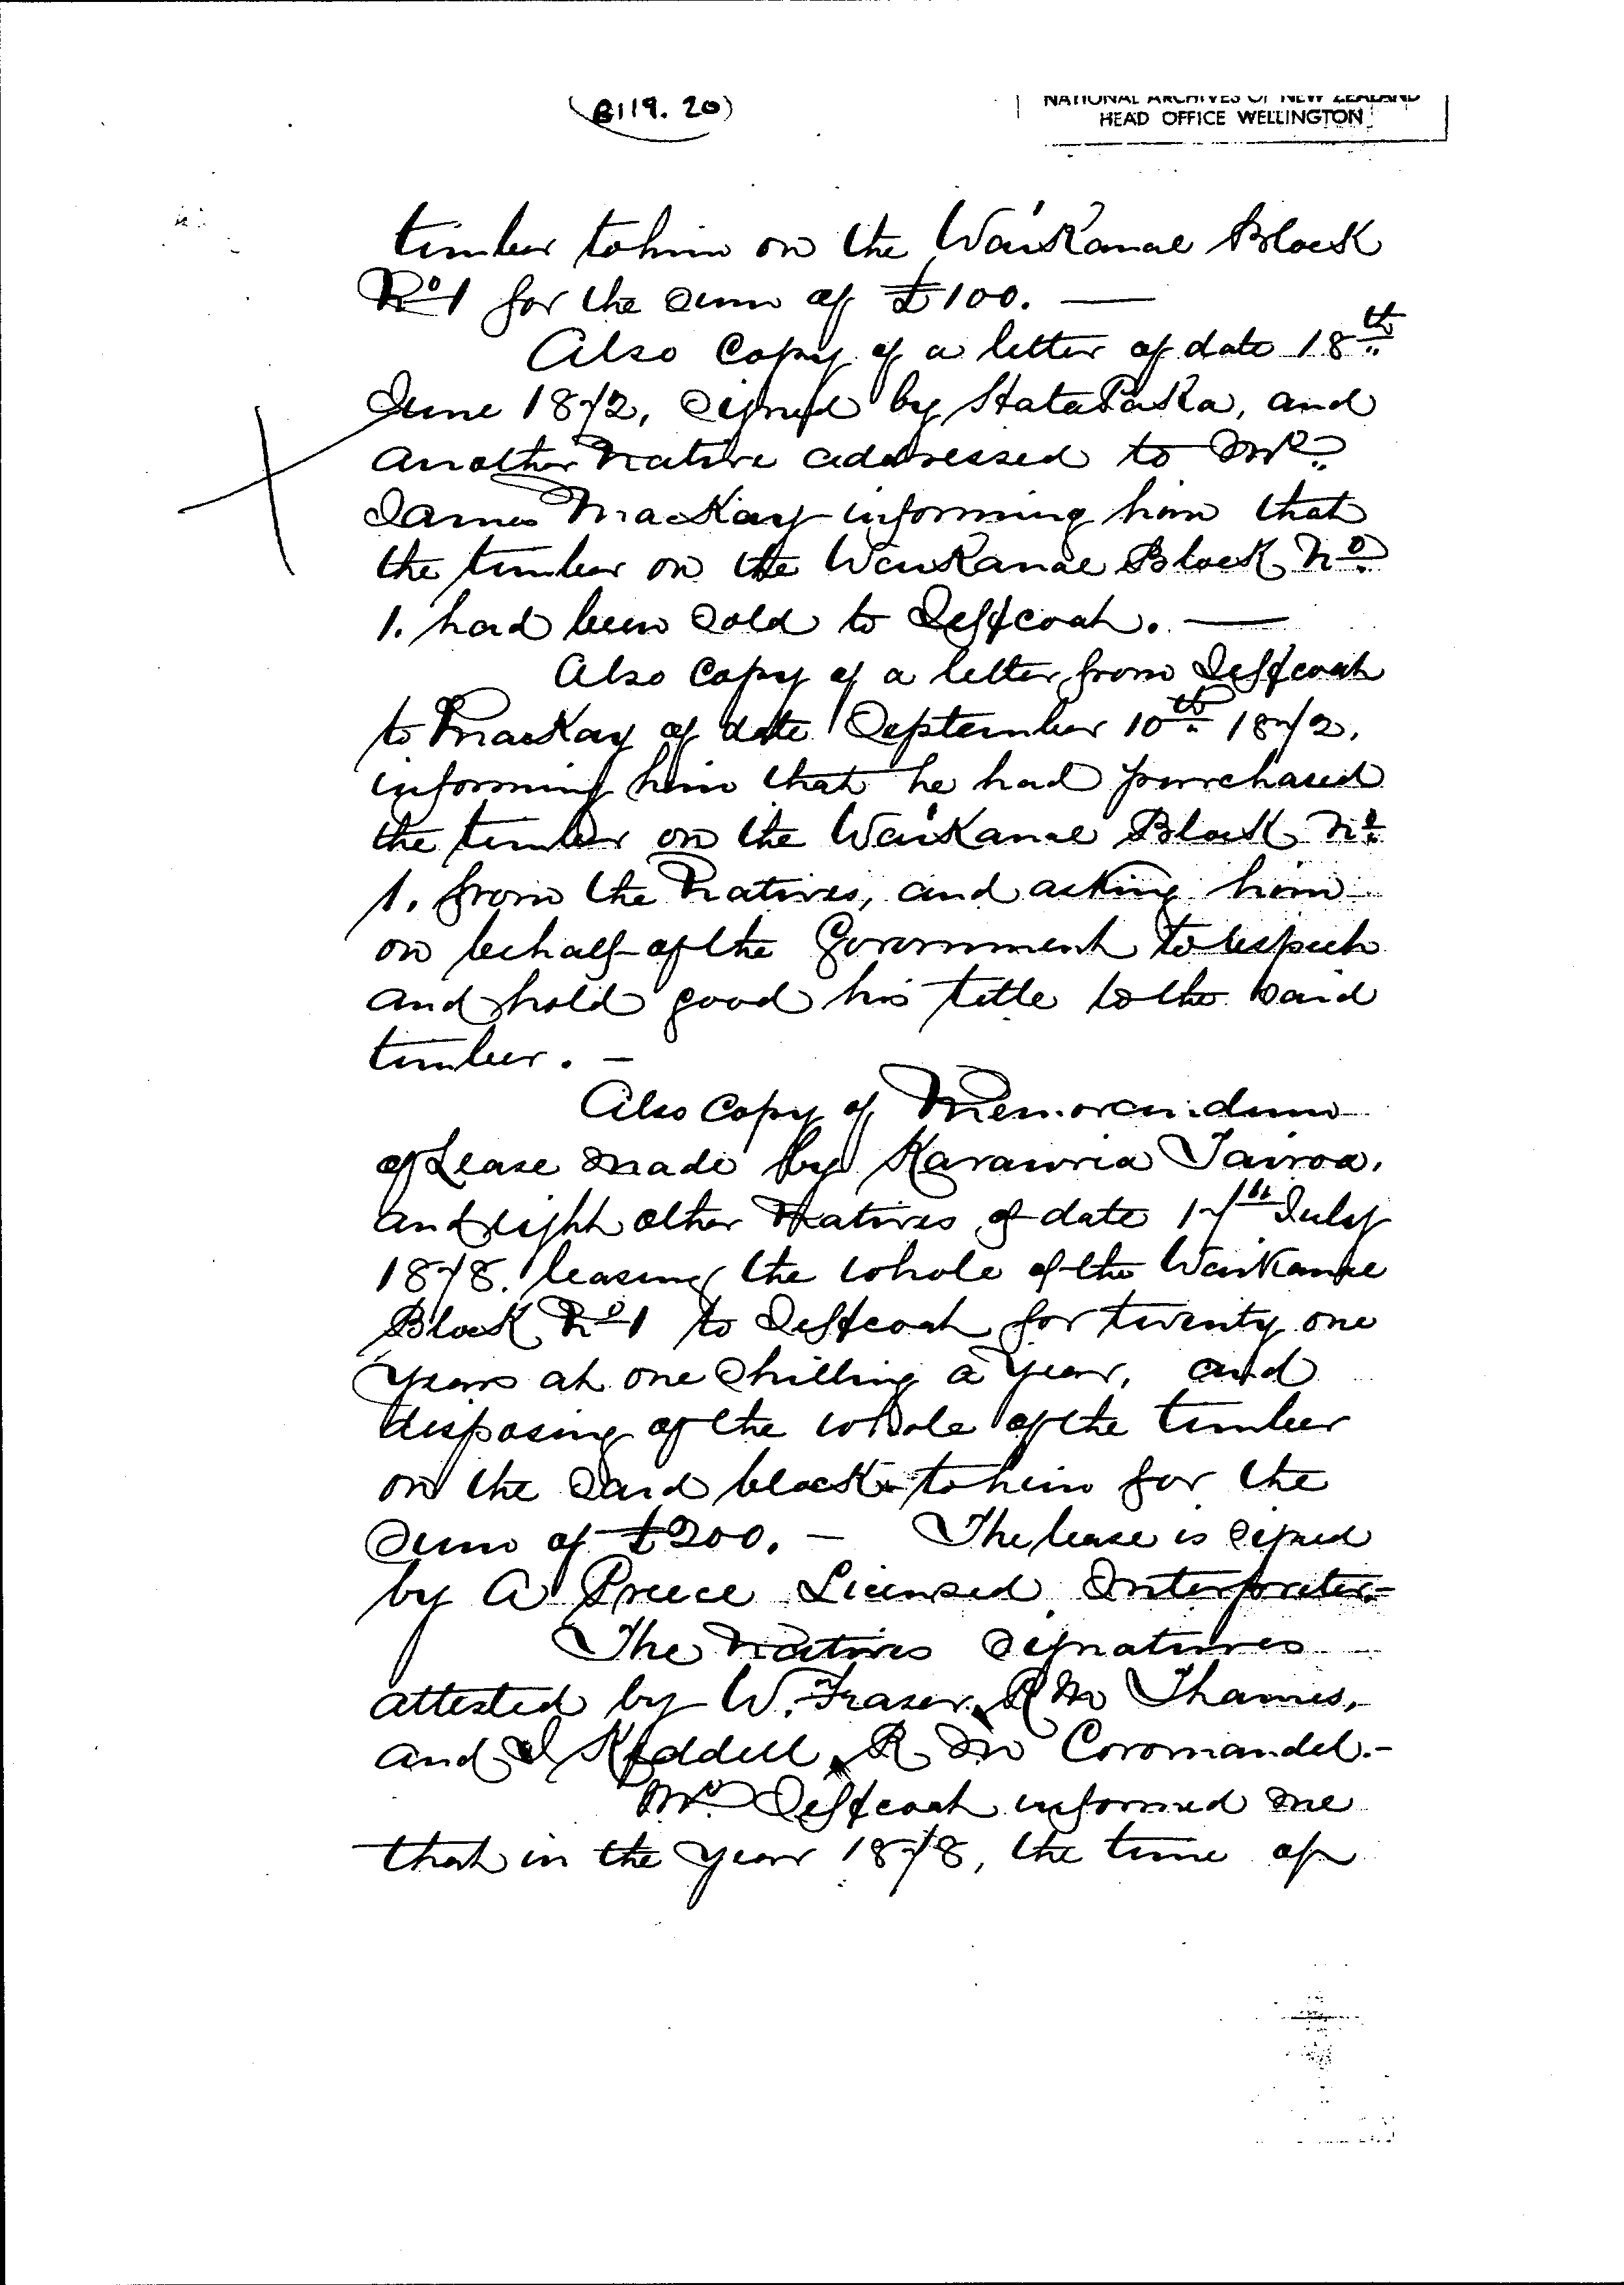 (B119. 20)
NATIONAL ARCHIVES OF NEW ZEALAND
HEAD OFFICE WELLINGTON
timber to him on the Waikanae Block
No 1 for the sum of £100. —
Also Copy of a letter of date 18th
June 1872, signed by Hata Paka, and
another Native addressed to Mr
James Mackay informing him that
the timber on the Waikanae Block No
1. had been sold to Jeffcoat. —
Also Copy of a letter from Jeffcoat
to Mackay of date September 10th 1872,
informing him that he had purchased
the timber on the Waikanae Block No
1. from the Natives, and asking him
on behalf of the Government to respect
and hold good his title to the said
timber. —
Also Copy of Memorandum
of Lease made by Karawria Tairoa,
and eight other Natives of date 17th July
1878. leasing the whole of the Waikanae
Block No 1 to Jeffcoat for twenty one
years at one shilling a year, and
disposing of the whole of the timber
on the said block to him for the
sum of £200. — The lease is signed
by A Preece Licensed Interpreter —
The Natives signatures
attested by W. Fraser, R M Thames,
and J Keddell, R M Coromandel. —
Mr Jeffcoat informed me
that in the year 1878, the time of